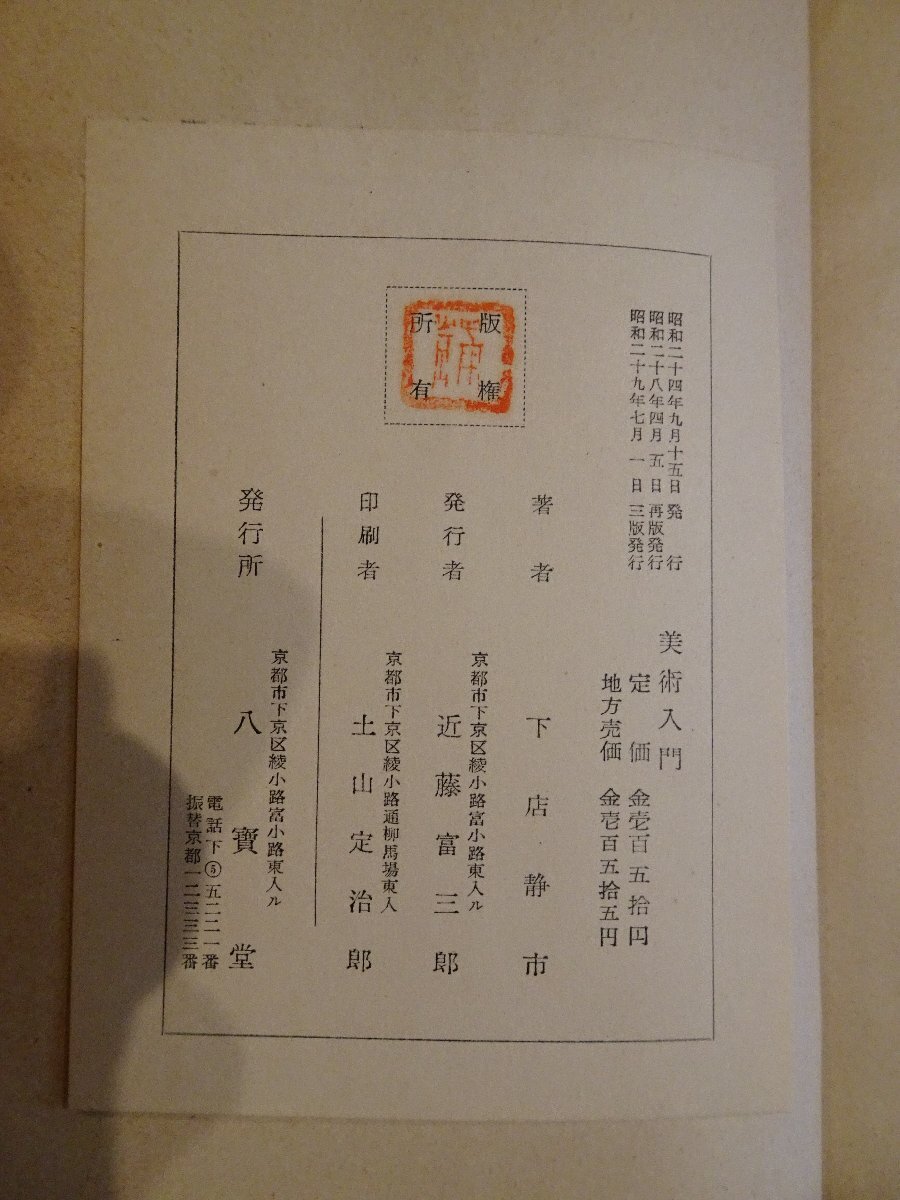 昭和二十四年九月十五日 発行
昭和二十八年四月五日 再版発行
昭和二十九年七月一日 三版発行
美術入門
定価 金壱百五拾円
地方売価 金壱百五拾五円
版権
所有
著者 下店静市
京都市下京区綾小路富小路東入ル
発行者 近藤富三郎
京都市下京区綾小路通柳馬場東入
印刷者 土山定治郎
京都市下京区綾小路富小路東入ル
発行所 八寶堂
電話下⑤五二二一番
振替京都一二三三三番